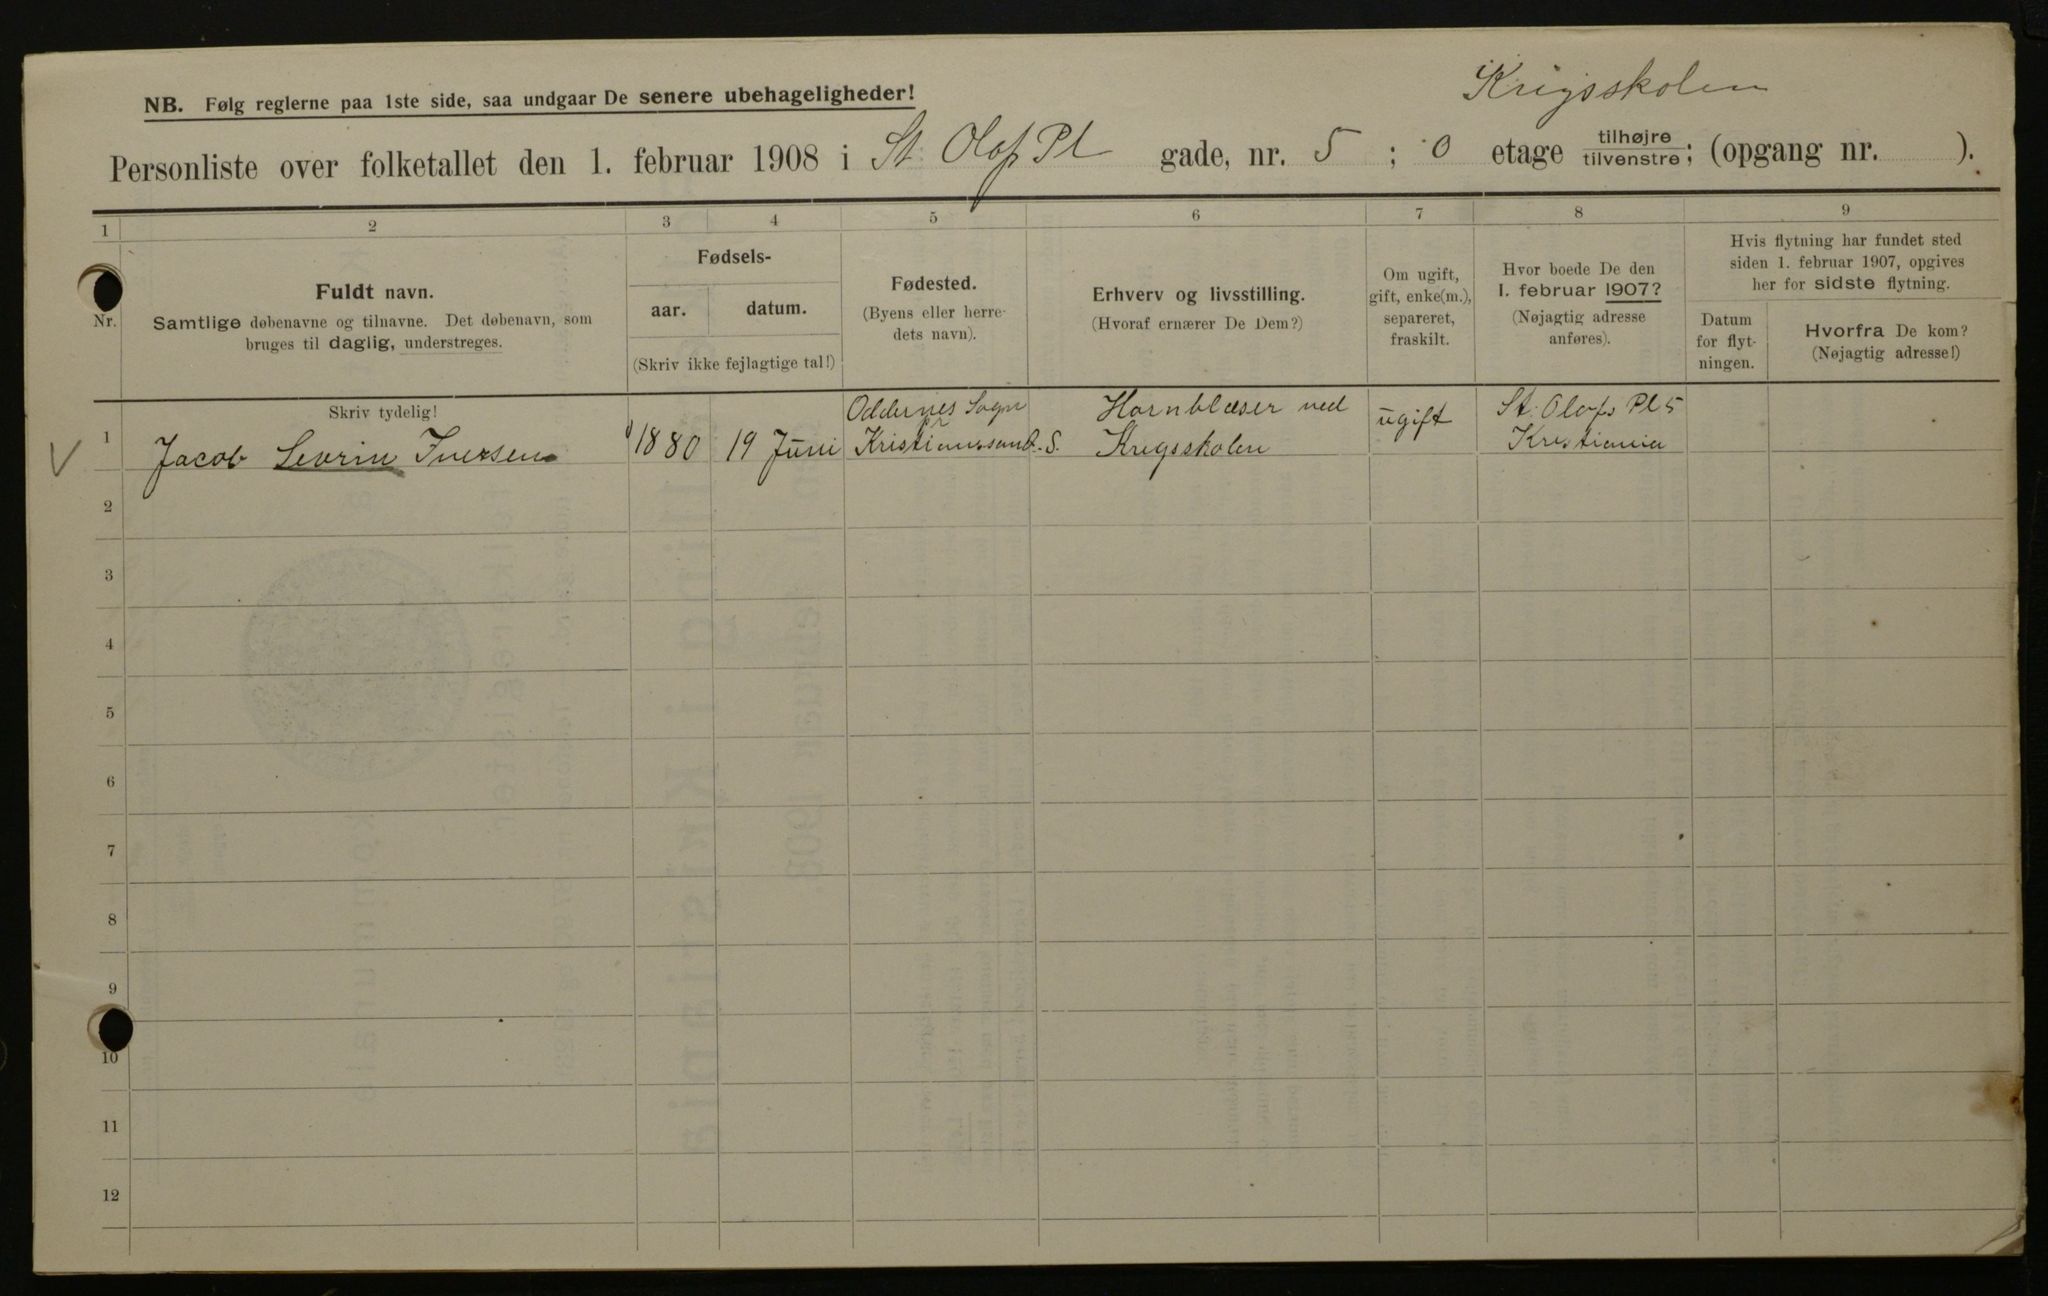 Krigsskolen
NB. Følg reglerne paa 1ste side, saa undgaar De senere ubehageligheder!
Personliste over folketallet den 1. februar 1908 i St Olafs Pl gade, nr. 5 ; 0 etage tilhøjre tilvenstre; (opgang nr. ).
1 2 3 4 5 6 7 8 9
Nr.
Fuldt navn.
Samtlige døbenavne og tilnavne. Det døbenavn, som
bruges til daglig, understreges.
Fødsels-
aar. datum.
(Skriv ikke fejlagtige tal!)
Fødested.
(Byens eller herre-
dets navn).
Erhverv og livsstilling.
(Hvoraf ernærer De Dem?)
Om ugift,
gift, enke(m.),
separeret,
fraskilt.
Hvor boede De den
1. februar 1907?
(Nøjagtig adresse
anføres).
Hvis flytning har fundet sted
siden 1. februar 1907, opgives
her for sidste flytning.
Datum
for flyt-
ningen.
Hvorfra De kom?
(Nøjagtig adresse!)
Skriv tydelig!
1 Jacob Sevrin Iversen 1880 19 Juni
Oddernes Sogn
pr
Kristianssand. S.
Hornblæser ved
Krigsskolen
ugift
St. Olafs Pl 5
Kristiania
2
3
4
5
6
7
8
9
10
11
12